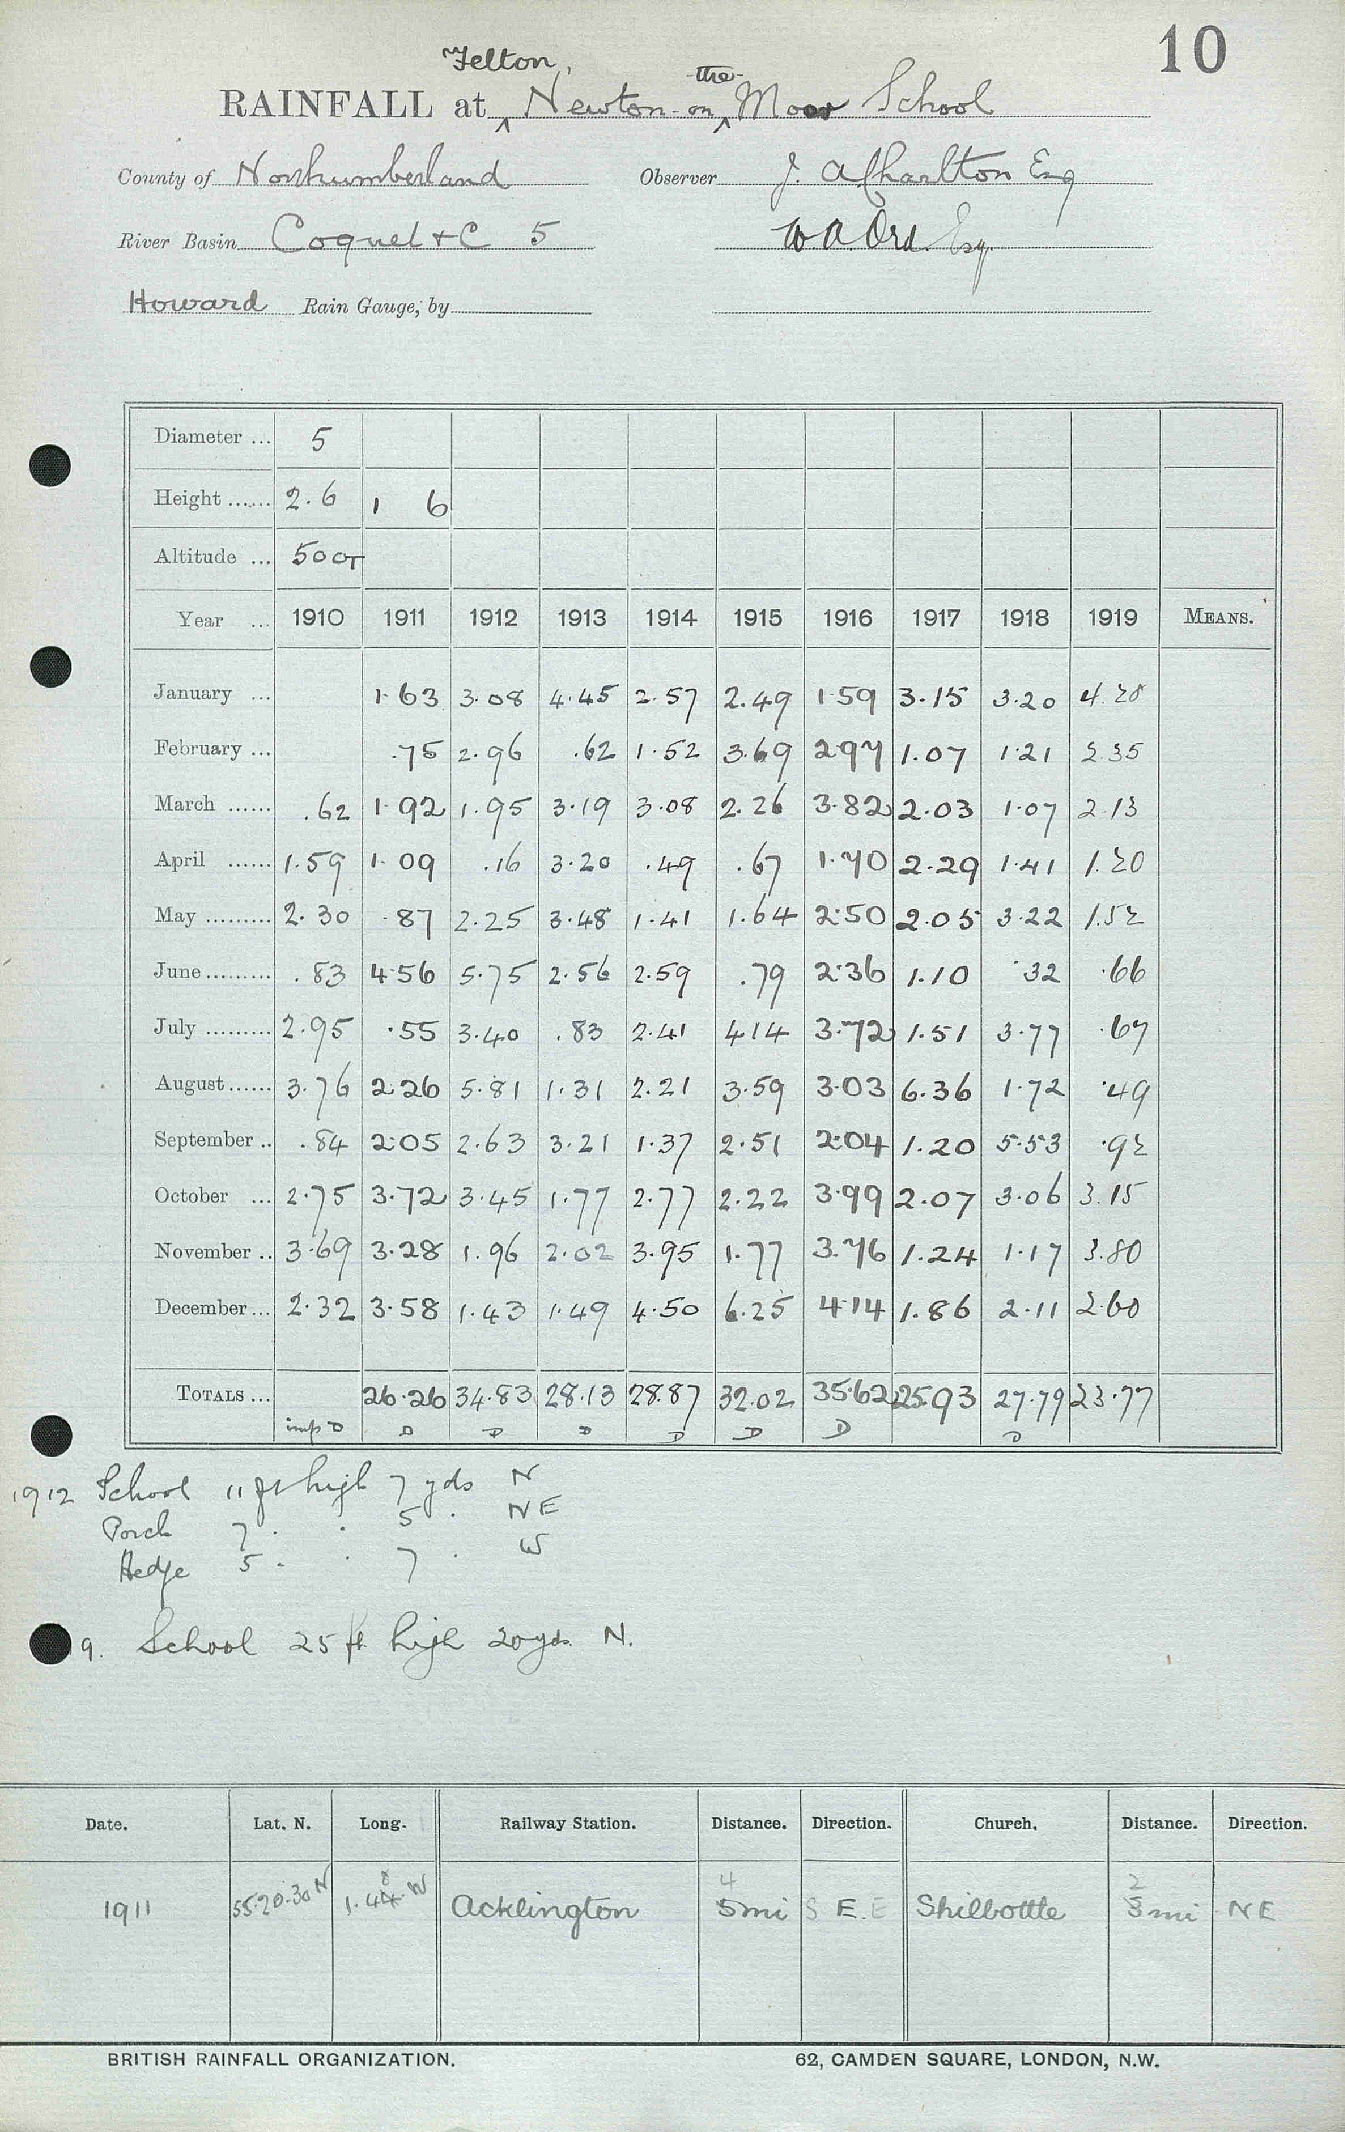 10
Felton,
RAINFALL at Newton-on-the-Moor School
County of Northumberland Observer J. A Charlton Esq
River Basin Coquet + C 5 W A. Ord. Esq.
Howard Rain Gauge, by
Diameter ... 5
Height ...... 2.6 1 6
Altitude ... 500T
Year ... 1910 1911 1912 1913 1914 1915 1916 1917 1918 1919 MEANS.
January ... 1.63 3.08 4.45 2.57 2.49 1.59 3.15 3.20 4.28
February ... .75 2.96 .62 1.52 3.69 2.97 1.07 1.21 2.35
March ...... .62 1.92 1.95 3.19 3.08 2.26 3.82 2.03 1.07 2.13
April ...... 1.59 1.09 .16 3.20 .49 .67 1.70 2.29 1.41 1.20
May ......... 2.30 .87 2.25 3.48 1.41 1.64 2.50 2.05 3.22 1.52
June ......... .83 4.56 5.75 2.56 2.59 .79 2.36 1.10 .32 .66
July ......... 2.95 .55 3.40 .83 2.41 4.14 3.72 1.51 3.77 .67
August ...... 3.76 2.26 5.81 1.31 2.21 3.59 3.03 6.36 1.72 .49
September .. .84 2.05 2.63 3.21 1.37 2.51 2.04 1.20 5.53 .92
October ... 2.75 3.72 3.45 1.77 2.77 2.22 3.99 2.07 3.06 3.15
November .. 3.69 3.28 1.96 2.02 3.95 1.77 3.76 1.24 1.17 3.80
December ... 2.32 3.58 1.43 1.49 4.50 6.25 4.14 1.86 2.11 2.60
TOTALS ... 26.26 34.83 28.13 28.87 32.02 35.62 25.93 27.79 23.77
imp D D D D D D D D
1912 School 11 ft high 7 yds N
Porch 7 . . 5 . NE
Hedge 5 . . 7 . W
9. School 25 ft high 20 yds. N.
Date. Lat. N. Long. Railway Station. Distance. Direction. Church. Distance. Direction.
4 2
1911 55.20.30 N 1.44.W Acklington 5 mi S E. E Shilbottle 3 mi NE
BRITISH RAINFALL ORGANIZATION. 62, CAMDEN SQUARE, LONDON, N.W.